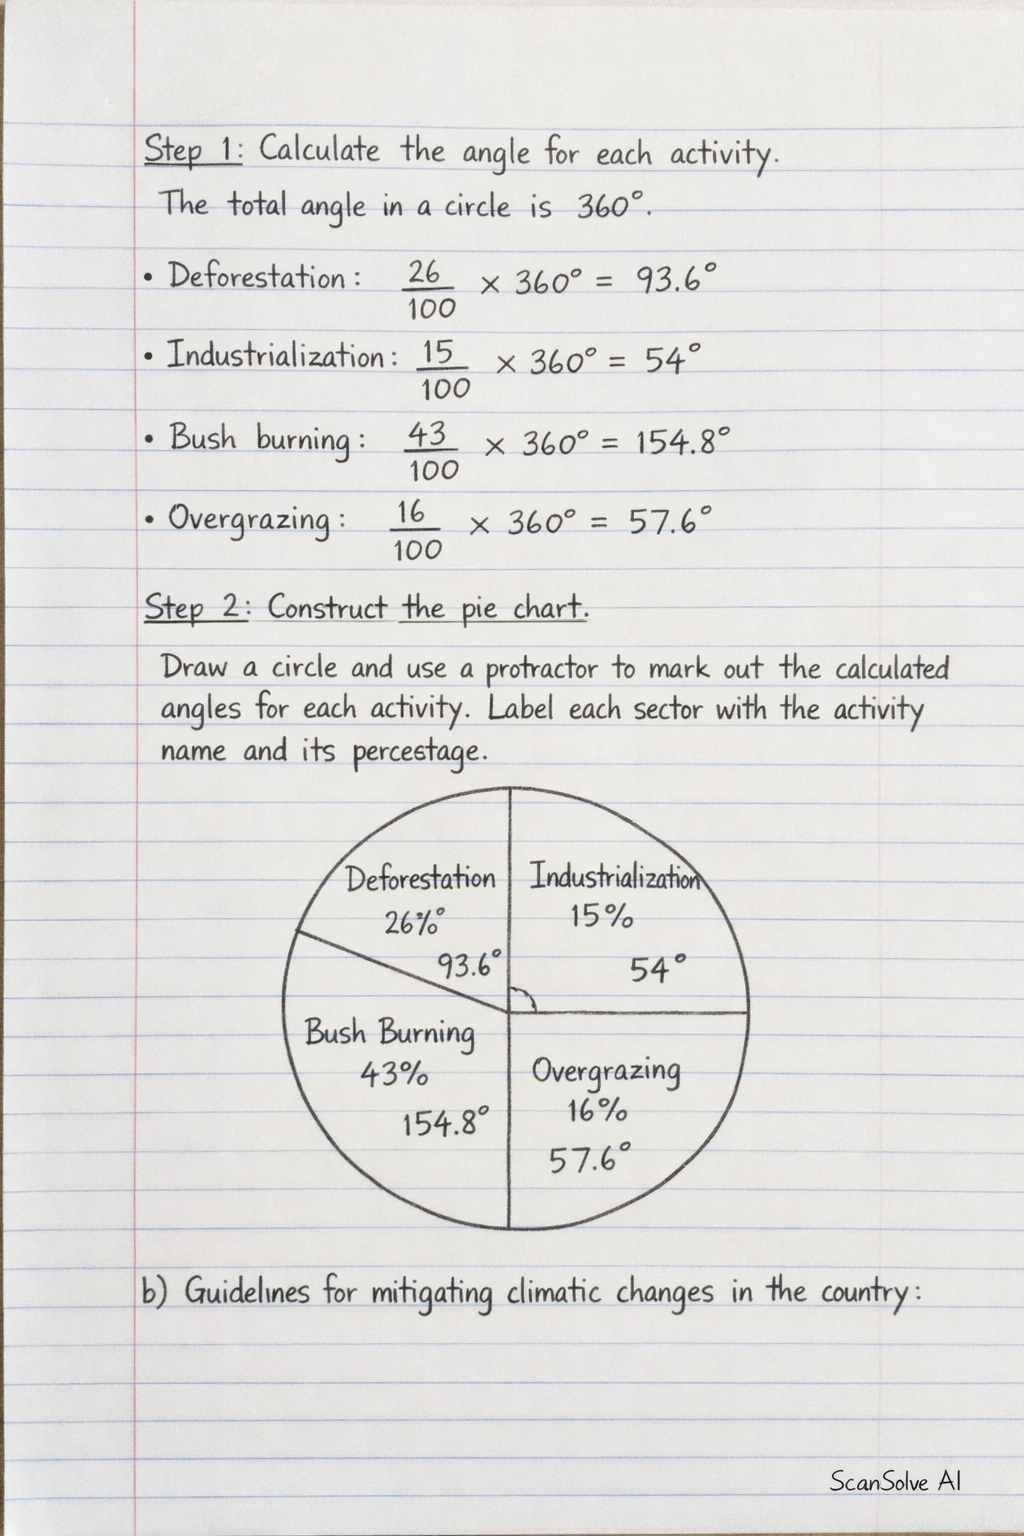 Step 1: Calculate the angle for each activity.
The total angle in a circle is 360°.
• Deforestation: 26/100 × 360° = 93.6°
• Industrialization: 15/100 × 360° = 54°
• Bush burning: 43/100 × 360° = 154.8°
• Overgrazing: 16/100 × 360° = 57.6°
Step 2: Construct the pie chart.
Draw a circle and use a protractor to mark out the calculated
angles for each activity. Label each sector with the activity
name and its percestage.
Deforestation
26%°
93.6°
Industrialization
15%
54°
Bush Burning
43%
154.8°
Overgrazing
16%
57.6°
b) Guidelines for mitigating climatic changes in the country:
ScanSolve AI